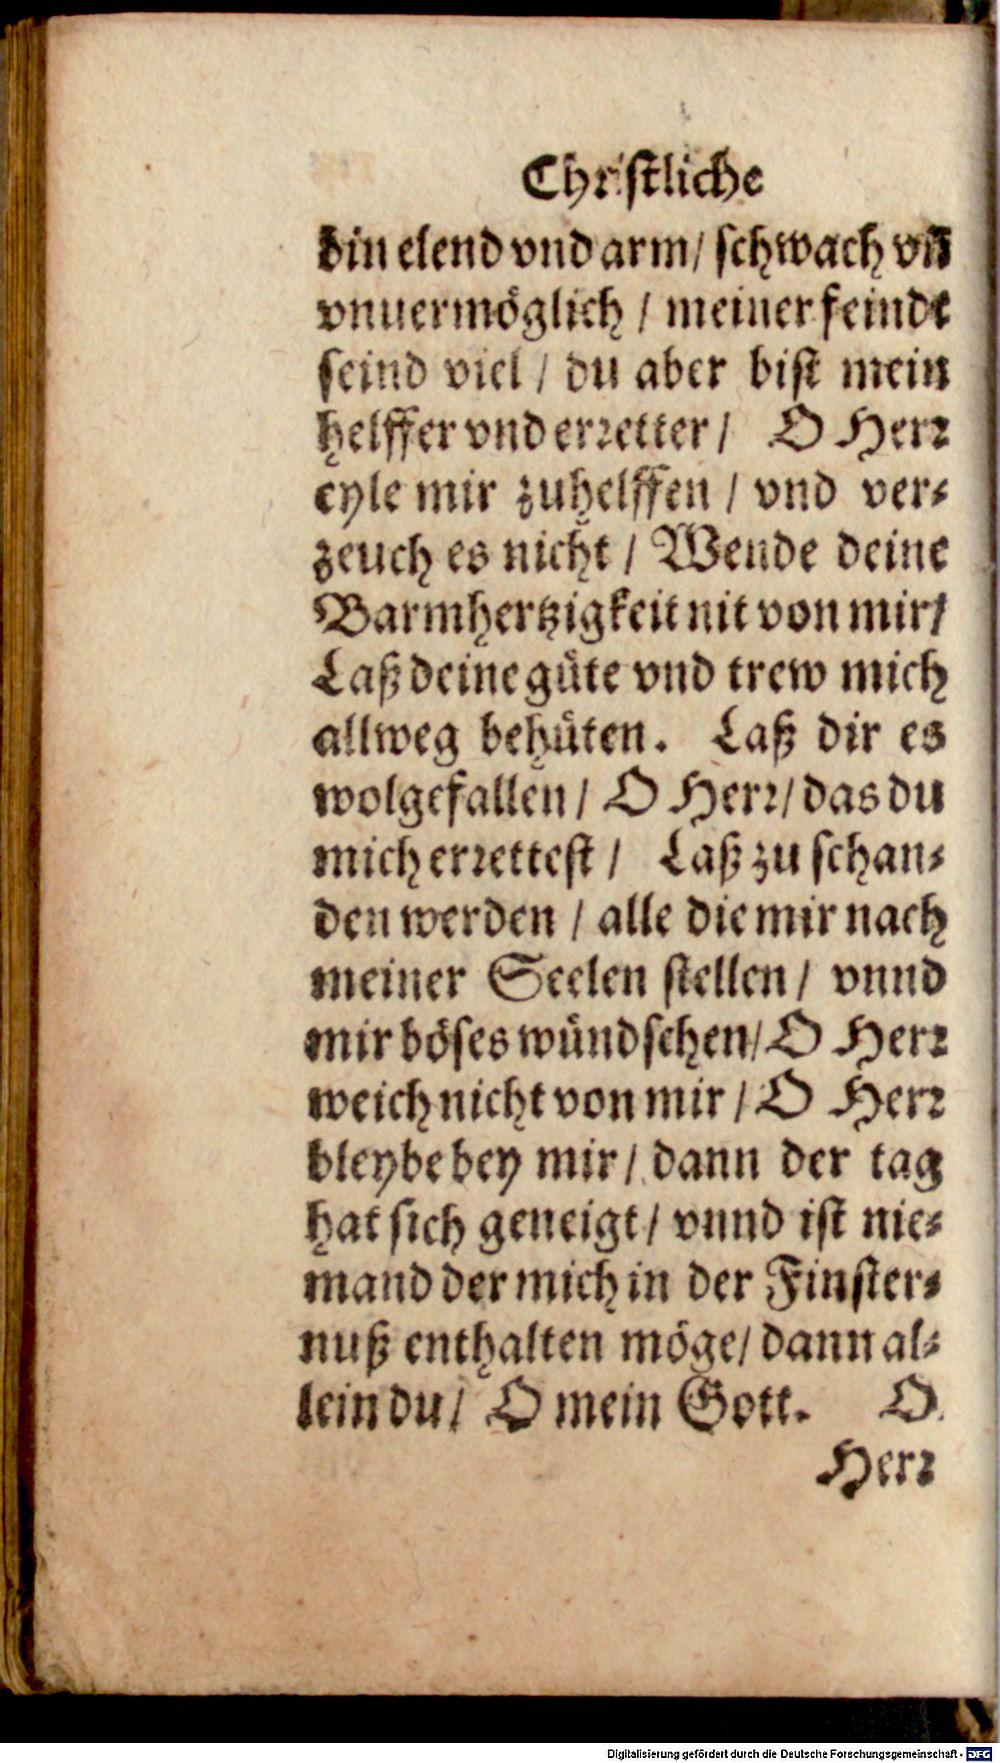 Christliche
bin elend vnd arm/ schwach vn̄
vnuermöglich / meiner feinde
seind viel / du aber bist mein
helffer vnd erꝛetter / O Herꝛ
eyle mir zuhelffen / vnd ver⸗
zeuch es nicht / Wende deine
Barmhertzigkeit nit von mir/
Laß deine güte vnd trew mich
allweg behüten. Laß dir es
wolgefallen / O Herꝛ/ das du
mich erꝛettest / Laß zu schan⸗
den werden / alle die mir nach
meiner Seelen stellen / vnnd
mir böses wündschen/ O Herꝛ
weich nicht von mir / O Herꝛ
bleybe bey mir / dann der tag
hat sich geneigt / vnnd ist nie⸗
mand der mich in der Finster⸗
nuß enthalten möge/ dann al⸗
lein du / O mein Gott. O
Herꝛ
Digitalisierung gefördert durch die Deutsche Forschungsgemeinschaft - DFG